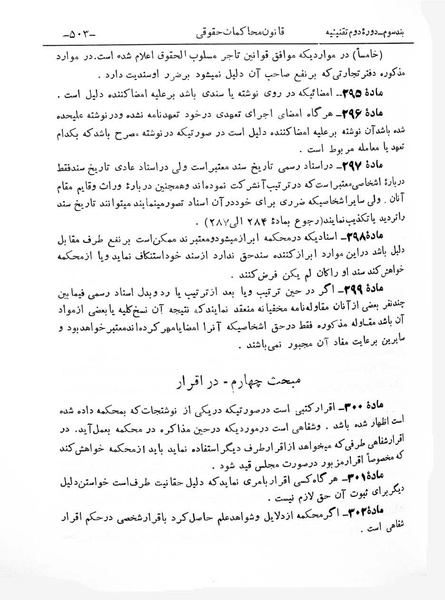 بندسوم_دورهٔ دوم تقنینیه قانون محاکمات حقوقی _۵۰۳_
(خامساً) در مواردیکه موافق قوانین تاجر مسلوب الحقوق اعلام شده است. در موارد
مذکوره دفتر تجارتی که بر نفع صاحب آن دلیل نمیشود بر ضرر او سندیت دارد .
مادهٔ ۲۹۵_ امضائیکه در روی نوشته یا سندی باشد بر علیه امضا کننده دلیل است .
مادهٔ ۲۹۶_ هر گاه امضای اجرای تعهدی در خود تعهدنامه نشده و در نوشته علیحده
شده باشد آن نوشته بر علیه امضا کننده دلیل است در صورتیکه در نوشته ، مصرح باشد که بکدام
تعهد یا معامله مربوط است .
مادهٔ ۲۹۷_ در اسناد رسمی تاریخ سند معتبر است ولی در اسناد عادی تاریخ سند فقط
دربارهٔ اشخاصی معتبر است که در ترتیب آنشرکت نموده اند و همچنین دربارهٔ وراث و قایم مقام
آنان . ولی سایر اشخاصیکه ضرری برای خود در آن اسناد تصور مینمایند میتوانند تاریخ سند
را تردید یا تکذیب نمایند (رجوع بمادهٔ ۲۸۴ الی ۲۸۷) .
مادهٔ ۲۹۸_ اسنادیکه در محکمه ابراز میشود و معتبر ند ممکن است بر نفع طرف مقابل
دلیل باشد در این موارد ابراز کننده سند حق ندارد از سند خود استنکاف نماید و یا از محکمه
خواهش کند سند او را کان لم یکن فرض کنند .
مادهٔ ۲۹۹_ اگر در حین ترتیب و یا بعد از ترتیب یا رد و بدل اسناد رسمی فیمابین
چند نفر بعضی از آنان مقاوله نامه مخفیانه منعقد نمایند که نتیجه آن نسخ کلیه یا بعضی از مواد
آن باشد مقاوله مذکوره فقط در حق اشخاصیکه آنرا امضا یا مهر کرده اند معتبر خواهد بود و
سایرین بر عایت مفاد آن مجبور نمی باشند .
مبحث چهارم - در اقرار
مادهٔ ۳۰۰_ اقرار کتبی است در صورتیکه در یکی از نوشتجات که بمحکمه داده شده
است اظهار شده باشد . و شفاهی است در صورتیکه در حین مذاکره در محکمه بعمل آید. در
اقرار شفاهی طرفی که میخواهد از اقرار طرف دیگر استفاده نماید باید از محکمه خواهش کند
که مخصوصاً اقرار مزبور در صورت مجلس قید شود .
مادهٔ ۳۰۱_ هر گاه کسی اقرار بامری نماید که دلیل حقانیت طرف است خواستن دلیل
دیگر برای ثبوت آن حق لازم نیست .
مادهٔ ۳۰۲_ اگر محکمه از دلایل و شواهد علم حاصل کرد باقرار شخصی در حکم اقرار
شفاهی است .